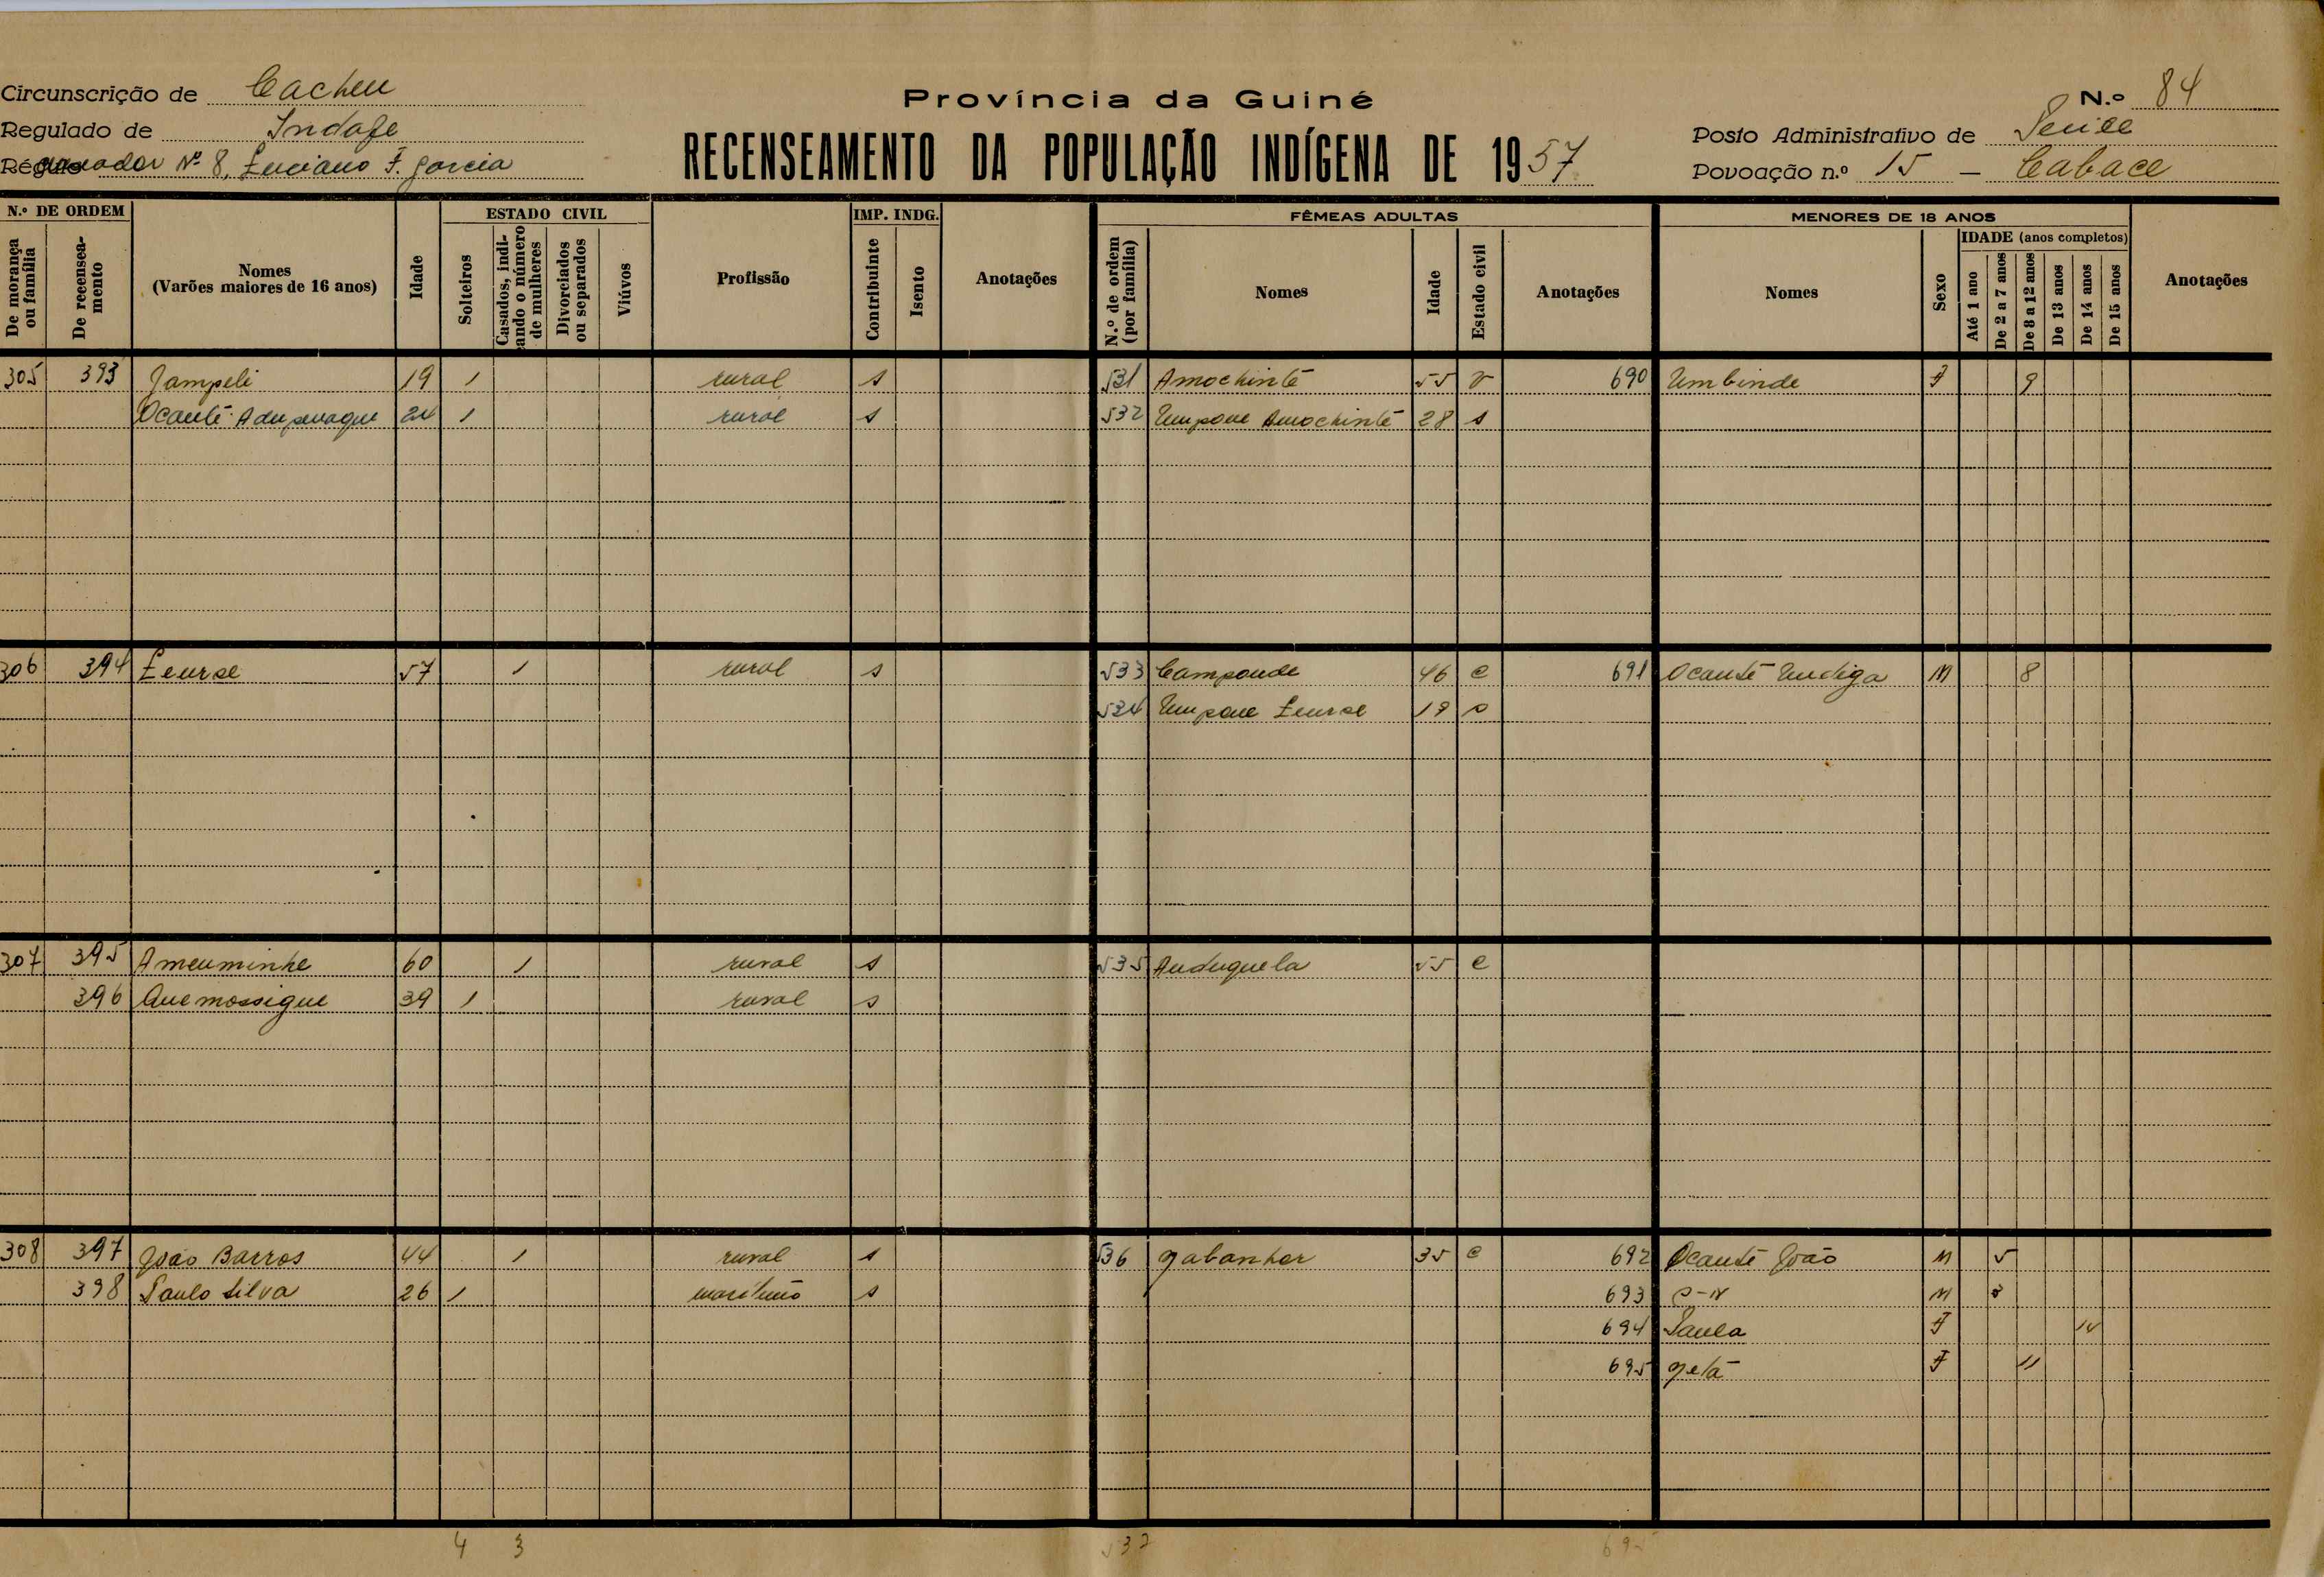 Província da Guiné
RECENSEAMENTO DA POPULAÇÃO INDÍGENA DE 1957
Circunscrição de Cacheu
Regulado de Indafe
Régulo Nº 8, Luciano F. Garcia
N.º 84
Posto Administrativo de
Povoação n.º 15 – Cabace
N.º DE ORDEM
De morança ou família
De recenseamento
Nomes (Varões maiores de 16 anos)
Idade
ESTADO CIVIL
Solteiros
Casados, indicando o número de mulheres
Divorciados ou separados
Viúvos
Profissão
IMP. INDG.
Contribuinte
Isento
Anotações
FÊMEAS ADULTAS
N.º de ordem (por família)
Nomes
Idade
Estado civil
Anotações
MENORES DE 18 ANOS
Nomes
Sexo
IDADE (anos completos)
Até 1 ano
De 2 a 7 anos
De 8 a 12 anos
De 13 anos
De 14 anos
De 15 anos
Anotações
305 393 Jampeli 19 1 rural s 531 Amochintê 55 v 690 Umbinde F 9
Ocantê 24 1 rural s 532 Umpone Amochintê 28 s
306 394 57 1 rural s 533 Camponde 46 c 691 Ocantê Undiga M 8
534 Umpone 19 s
307 395 Ameuminhe 60 1 rural s 535 Anduquela 55 c
396 Quemossique 39 1 rural s
308 397 João Barros 44 1 rural s 536 35 c 692 Ocantê João M 5
398 Paulo Silva 26 1 marítimo s 693 S-N M 3
694 Paula F 14
695 F 11
4 3